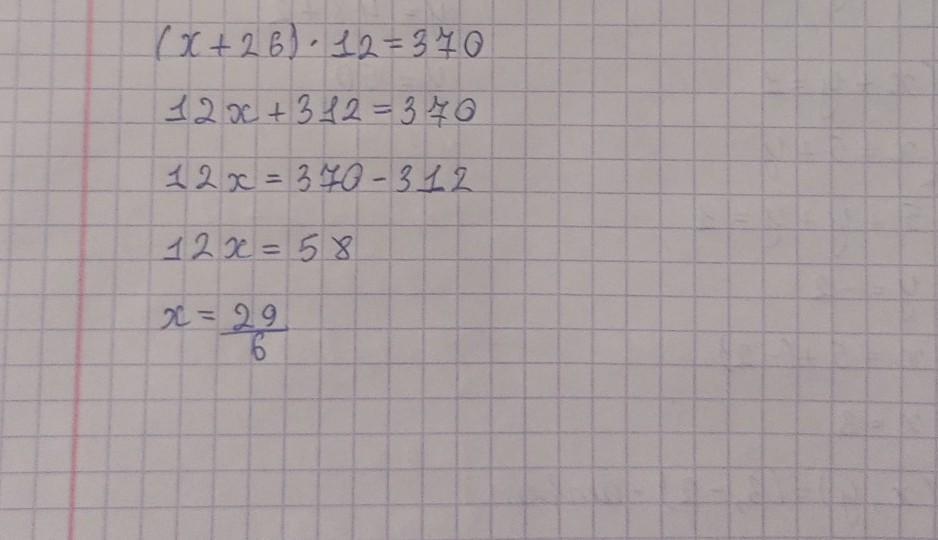 (x+26)·12=370
12x+312=370
12x=370-312
12x=58
x=29/6